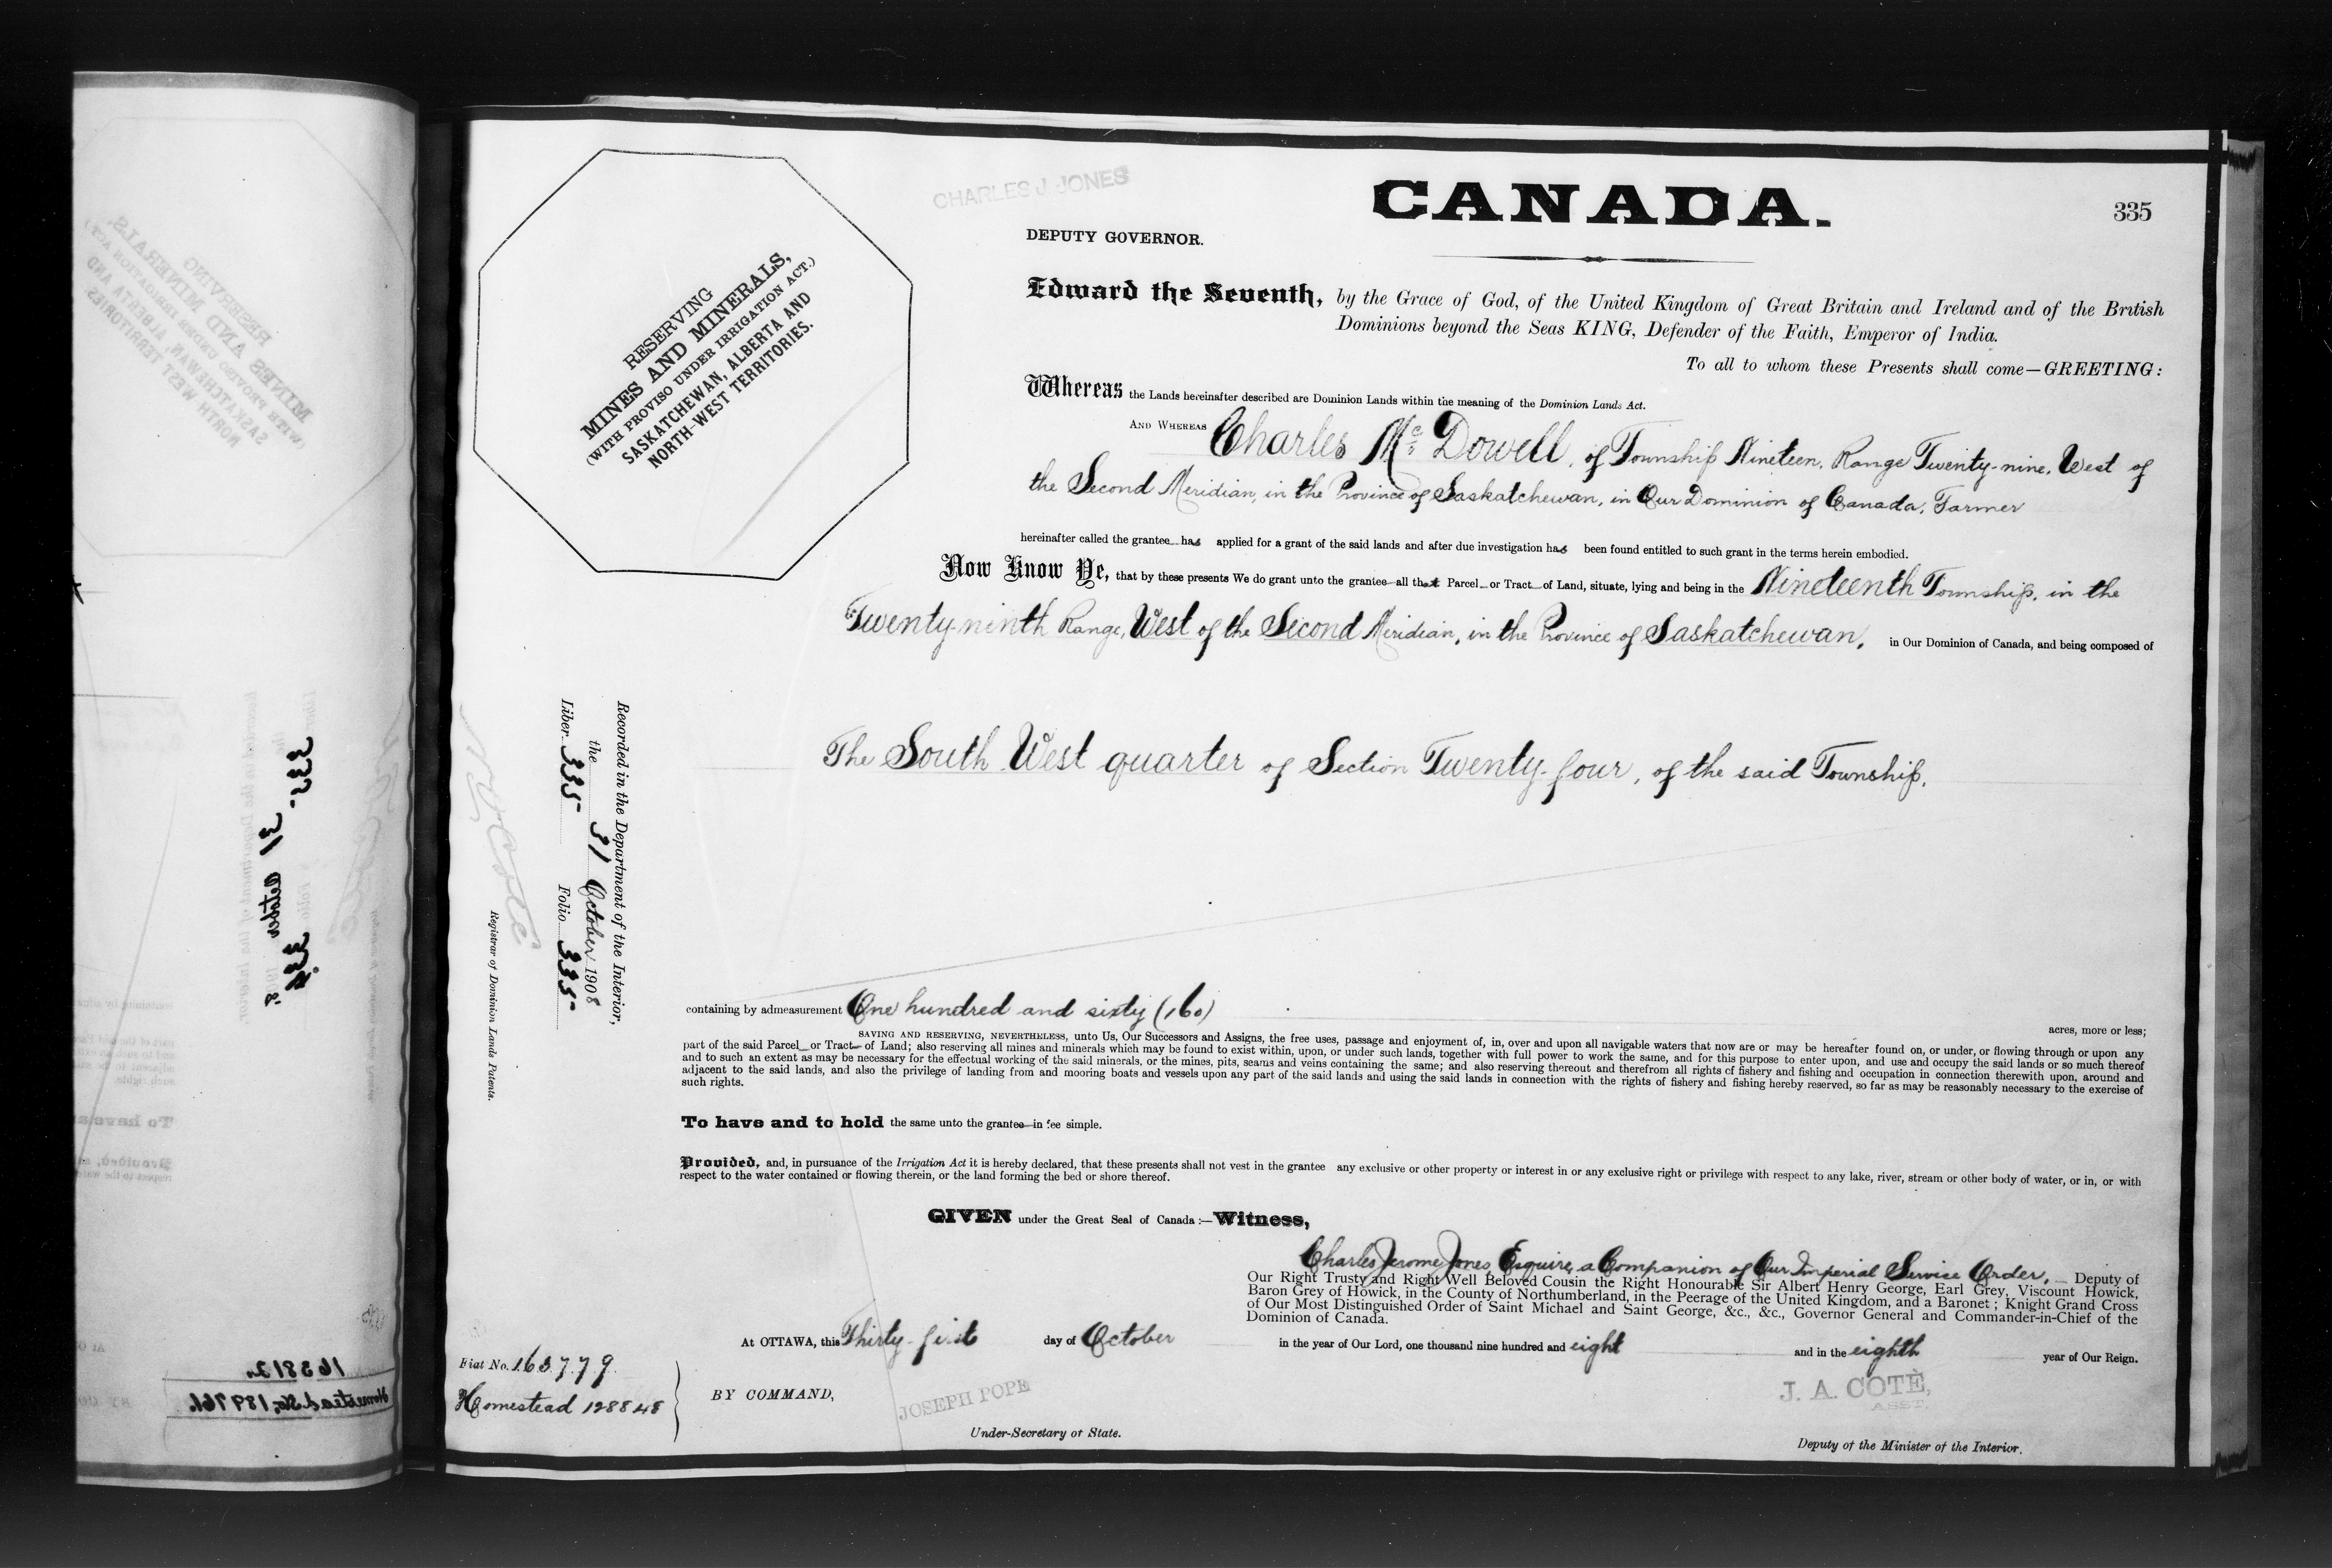 CHARLES J. JONES
CANADA.
335
DEPUTY GOVERNOR.
RESERVING
MINES AND MINERALS,
(WITH PROVISO UNDER IRRIGATION ACT.)
SASKATCHEWAN, ALBERTA AND
NORTH-WEST TERRITORIES.
Edward the Seventh, by the Grace of God, of the United Kingdom of Great Britain and Ireland and of the British
Dominions beyond the Seas KING, Defender of the Faith, Emperor of India.
To all to whom these Presents shall come—GREETING:
Whereas the Lands hereinafter described are Dominion Lands within the meaning of the Dominion Lands Act.
AND WHEREAS Charles Mc Dowell, of Township Nineteen, Range Twenty-nine, West of
the Second Meridian, in the Province of Saskatchewan, in Our Dominion of Canada, Farmer
hereinafter called the grantee has applied for a grant of the said lands and after due investigation has been found entitled to such grant in the terms herein embodied.
Now Know Ye, that by these presents We do grant unto the grantee all that Parcel or Tract of Land, situate, lying and being in the Nineteenth Township, in the
Twenty-ninth Range, West of the Second Meridian, in the Province of Saskatchewan, in Our Dominion of Canada, and being composed of
The South West quarter of Section Twenty-four, of the said Township,
Recorded in the Department of the Interior,
the 31 October 1908
Liber 335 Folio 335
N O Coté
Registrar of Dominion Lands Patents.
containing by admeasurement One hundred and sixty (160) acres, more or less;
SAVING AND RESERVING, NEVERTHELESS, unto Us, Our Successors and Assigns, the free uses, passage and enjoyment of, in, over and upon all navigable waters that now are or may be hereafter found on, or under, or flowing through or upon any
part of the said Parcel or Tract of Land; also reserving all mines and minerals which may be found to exist within, upon, or under such lands, together with full power to work the same, and for this purpose to enter upon, and use and occupy the said lands or so much thereof
and to such an extent as may be necessary for the effectual working of the said minerals, or the mines, pits, seams and veins containing the same; and also reserving thereout and therefrom all rights of fishery and fishing and occupation in connection therewith upon, around and
adjacent to the said lands, and also the privilege of landing from and mooring boats and vessels upon any part of the said lands and using the said lands in connection with the rights of fishery and fishing hereby reserved, so far as may be reasonably necessary to the exercise of
such rights.
To have and to hold the same unto the grantee in fee simple.
Provided, and, in pursuance of the Irrigation Act it is hereby declared, that these presents shall not vest in the grantee any exclusive or other property or interest in or any exclusive right or privilege with respect to any lake, river, stream or other body of water, or in, or with
respect to the water contained or flowing therein, or the land forming the bed or shore thereof.
GIVEN under the Great Seal of Canada:—Witness,
Charles Jerome Jones, Esquire, a Companion of Our Imperial Service Order, Deputy of
Our Right Trusty and Right Well Beloved Cousin the Right Honourable Sir Albert Henry George, Earl Grey, Viscount Howick,
Baron Grey of Howick, in the County of Northumberland, in the Peerage of the United Kingdom, and a Baronet; Knight Grand Cross
of Our Most Distinguished Order of Saint Michael and Saint George, &c., &c., Governor General and Commander-in-Chief of the
Dominion of Canada.
At OTTAWA, this Thirty-first day of October in the year of Our Lord, one thousand nine hundred and eight and in the eighth year of Our Reign.
Fiat No. 163779
Homestead 128848
BY COMMAND,
JOSEPH POPE
Under-Secretary of State.
J. A. COTÈ,
ASST.
Deputy of the Minister of the Interior.